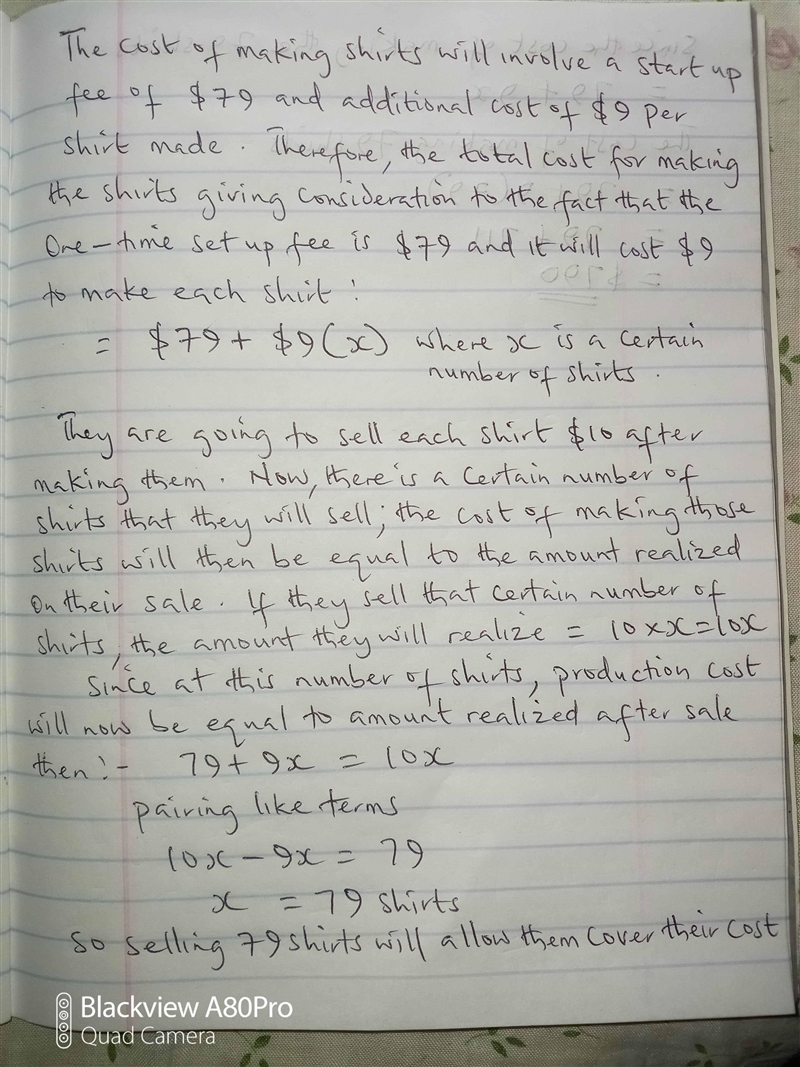 The cost of making shirts will involve a start up
fee of $79 and additional cost of $9 per
shirt made. Therefore, the total cost for making
the shirts giving consideration to the fact that the
One-time set up fee is $79 and it will cost $9
to make each shirt:
= $79 + $9(x) where x is a certain
number of shirts.
They are going to sell each shirt $10 after
making them. Now, there is a certain number of
shirts that they will sell; the cost of making those
shirts will then be equal to the amount realized
on their sale. If they sell that certain number of
shirts, the amount they will realize = 10 x x = 10x
Since at this number of shirts, production cost
will now be equal to amount realized after sale
then:- 79 + 9x = 10x
pairing like terms
10x - 9x = 79
x = 79 shirts
So selling 79 shirts will allow them cover their cost
Blackview A80Pro
Quad Camera